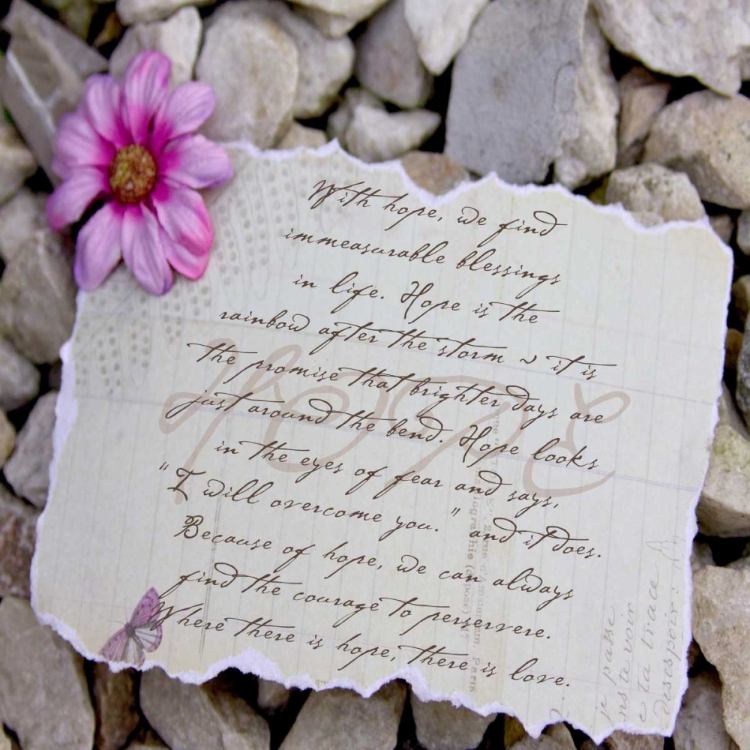 With hope, we find
immeasurable blessings
in life. Hope is the
rainbow after the storm ~ it is
the promise that brighter days are
just around the bend. Hope looks
in the eyes of fear and says,
"I will overcome you." and it does.
Because of hope, we can always
find the courage to perservere.
Where there is hope, there is love.
Hope